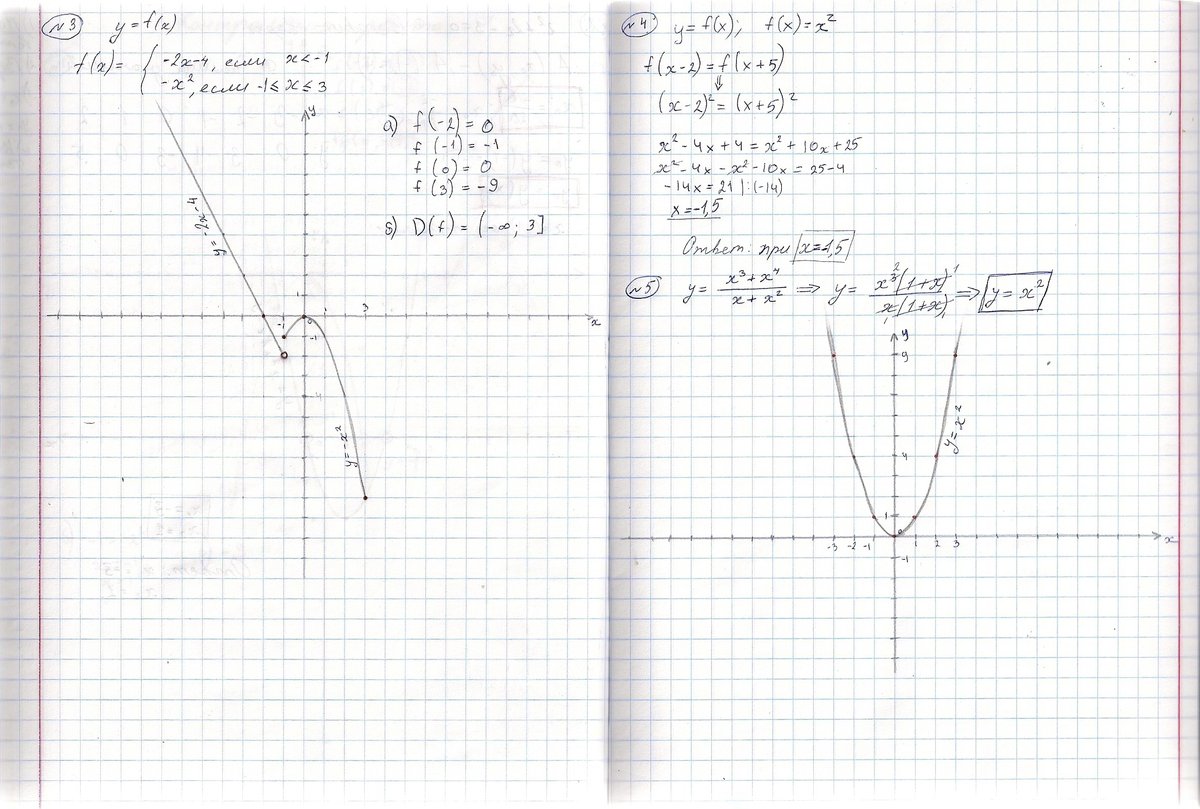 №3 y = f(x)
f(x) = { -2x-4, если x < -1
-x², если -1 ≤ x ≤ 3
y
а) f(-2) = 0
f(-1) = -1
f(0) = 0
f(3) = -9
б) D(f) = (-∞; 3]
y = -2x-4
1
3
-1
0
x
-1
-4
y = -x²
№4 y = f(x); f(x) = x²
f(x-2) = f(x+5)
⇓
(x-2)² = (x+5)²
x² - 4x + 4 = x² + 10x + 25
x² - 4x - x² - 10x = 25-4
-14x = 21 |:(-14)
x = -1,5
Ответ: при x=-1,5
№5 y = (x³ + x⁴)/(x + x²) ⇒ y = (x³(1+x))/(x(1+x)) ⇒ y = x²
2 1
1 1
y
9
y = x²
4
1
0
-3 -2 -1 1 2 3 x
-1